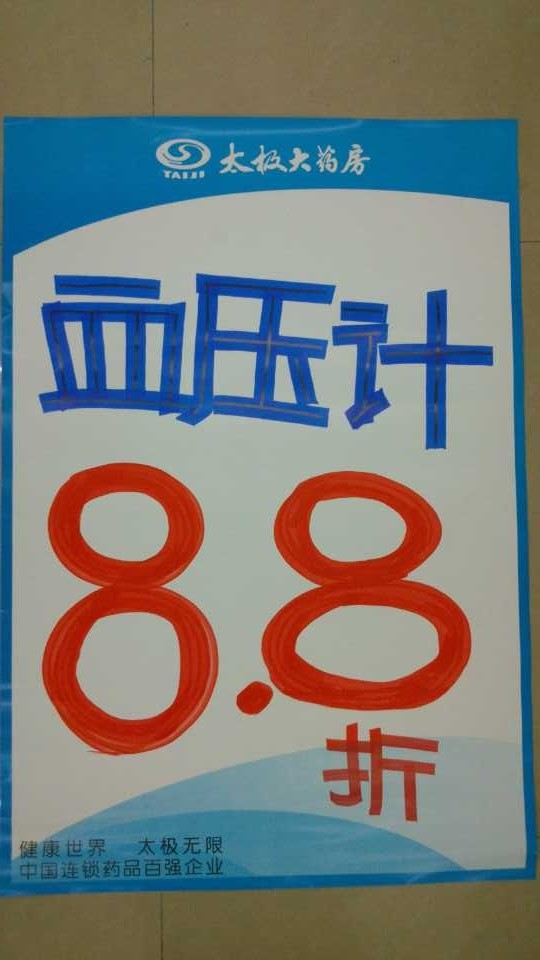 TAIJI 太极大药房
血压计
8.8
折
健康世界 太极无限
中国连锁药品百强企业